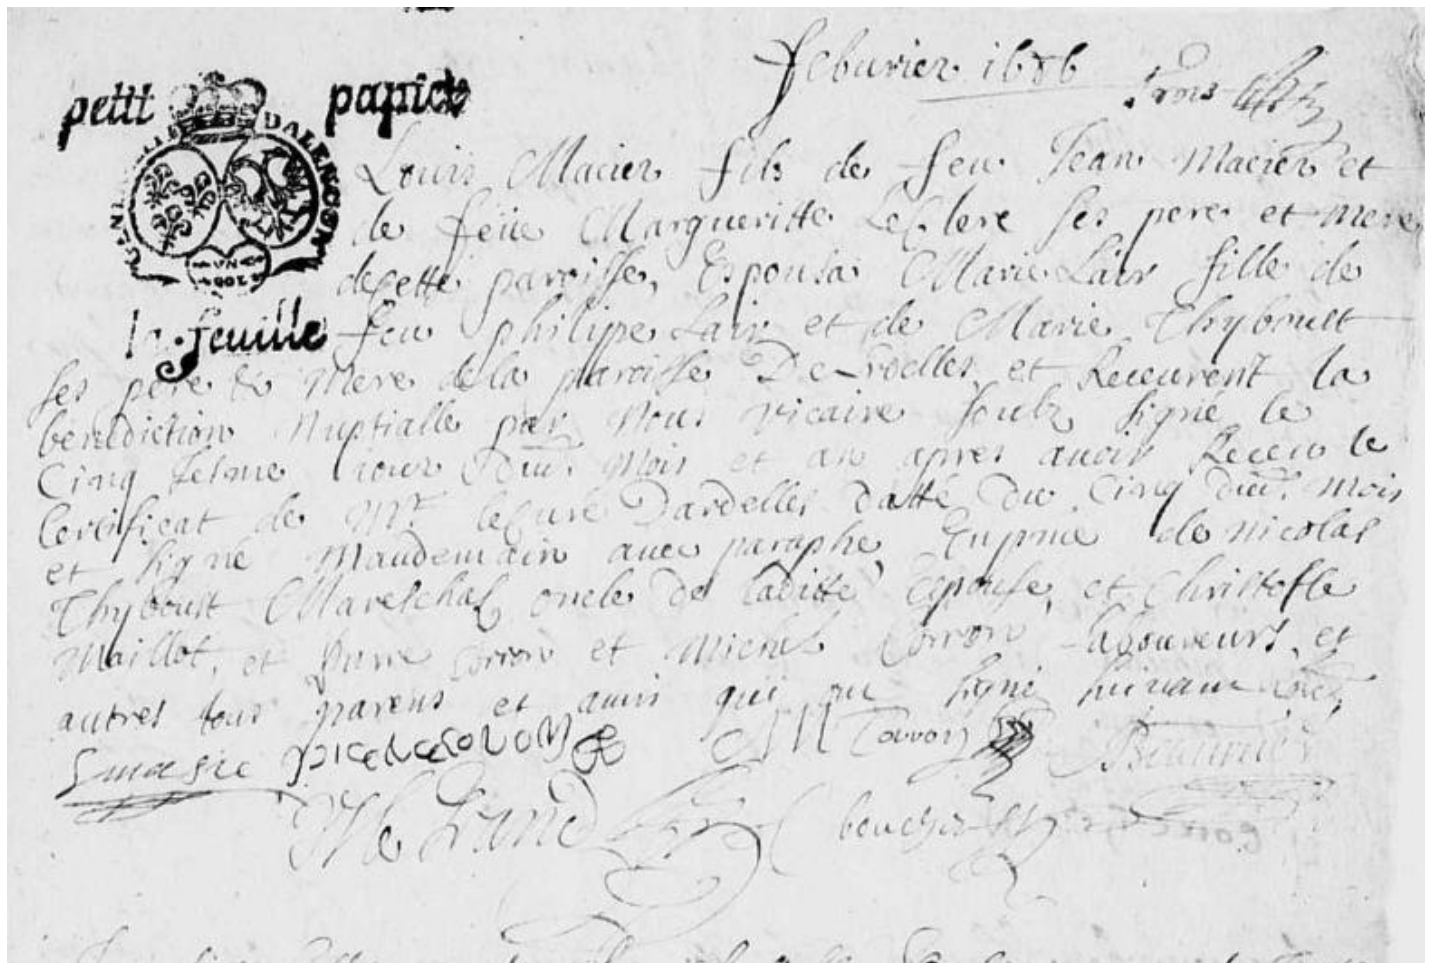 petit papier
GENERALITE DALENCON
UN
la feuille
feburier 1686
trois
Louis Macier fils de feu Jean Macier et
de feüe Margueritte LeClerc ses pere et mere
de cette paroisse, Espousa Marie Lair fille de
feu philipe Lair et de Marie Thyboult
ses pere & mere de la paroisse De et Receurent la
benediction Nuptialle par Nous vicaire soubz signé le
Cinq iesme iour Dud. mois et an apres auoir Receu le
Certificat de Mr. leCuré Dardelles datté du Cinq dud. mois
et signé Maudemain auec paraphe, En pnce de nicolas
Thyboust Mareschal oncle de laditte Epouse, et Christofle
Maillot, et et Michel Corron laboureurs, et
autres tous parens et amis qui on signé
M Coron
boucher